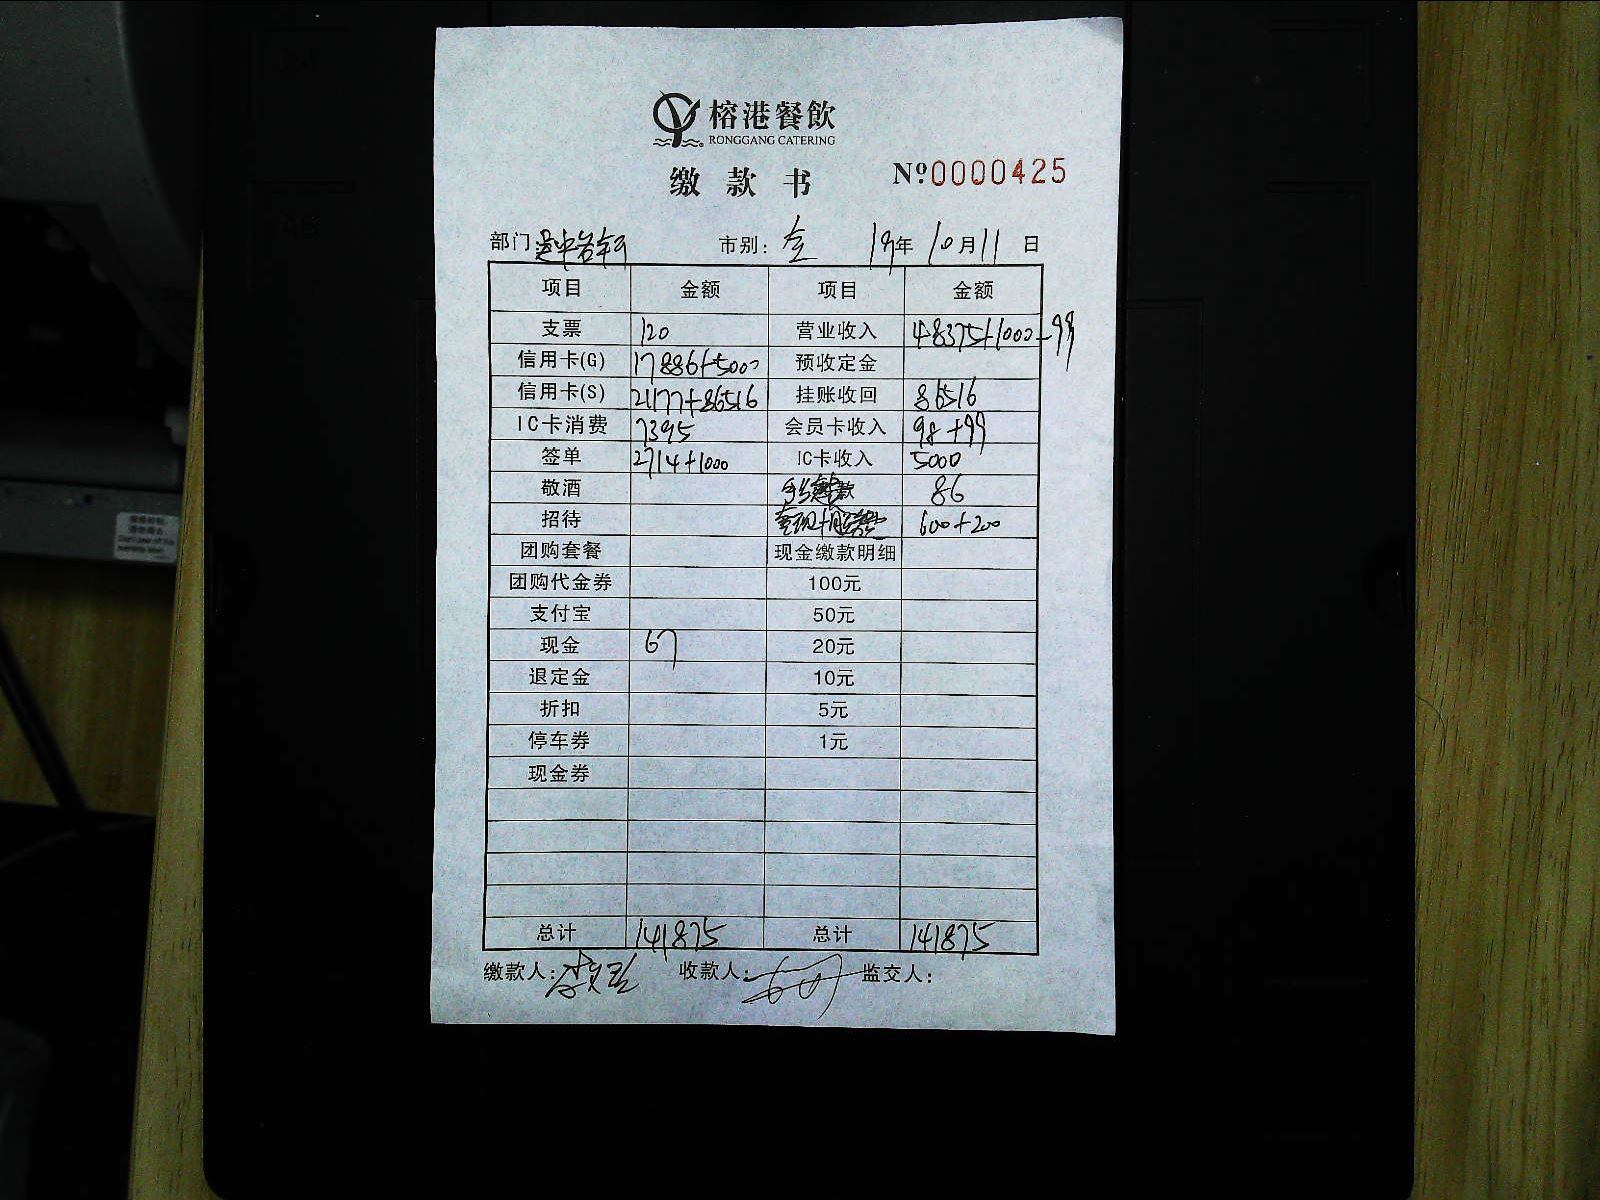 榕港餐飲
RONGGANG CATERING
缴款书 Nº0000425
部门 市别：全 19年10月11日
项目 金额 项目 金额
支票 120 营业收入 48375+1000-99
信用卡(G) 17886+5000 预收定金
信用卡(S) 21177+86516 挂账收回 86516
IC卡消费 7395 会员卡收入 98+99
签单 2714+1000 IC卡收入 5000
敬酒 86
招待 600+200
团购套餐 现金缴款明细
团购代金券 100元
支付宝 50元
现金 67 20元
退定金 10元
折扣 5元
停车券 1元
现金券
总计 141875 总计 141875
缴款人： 收款人： 监交人：